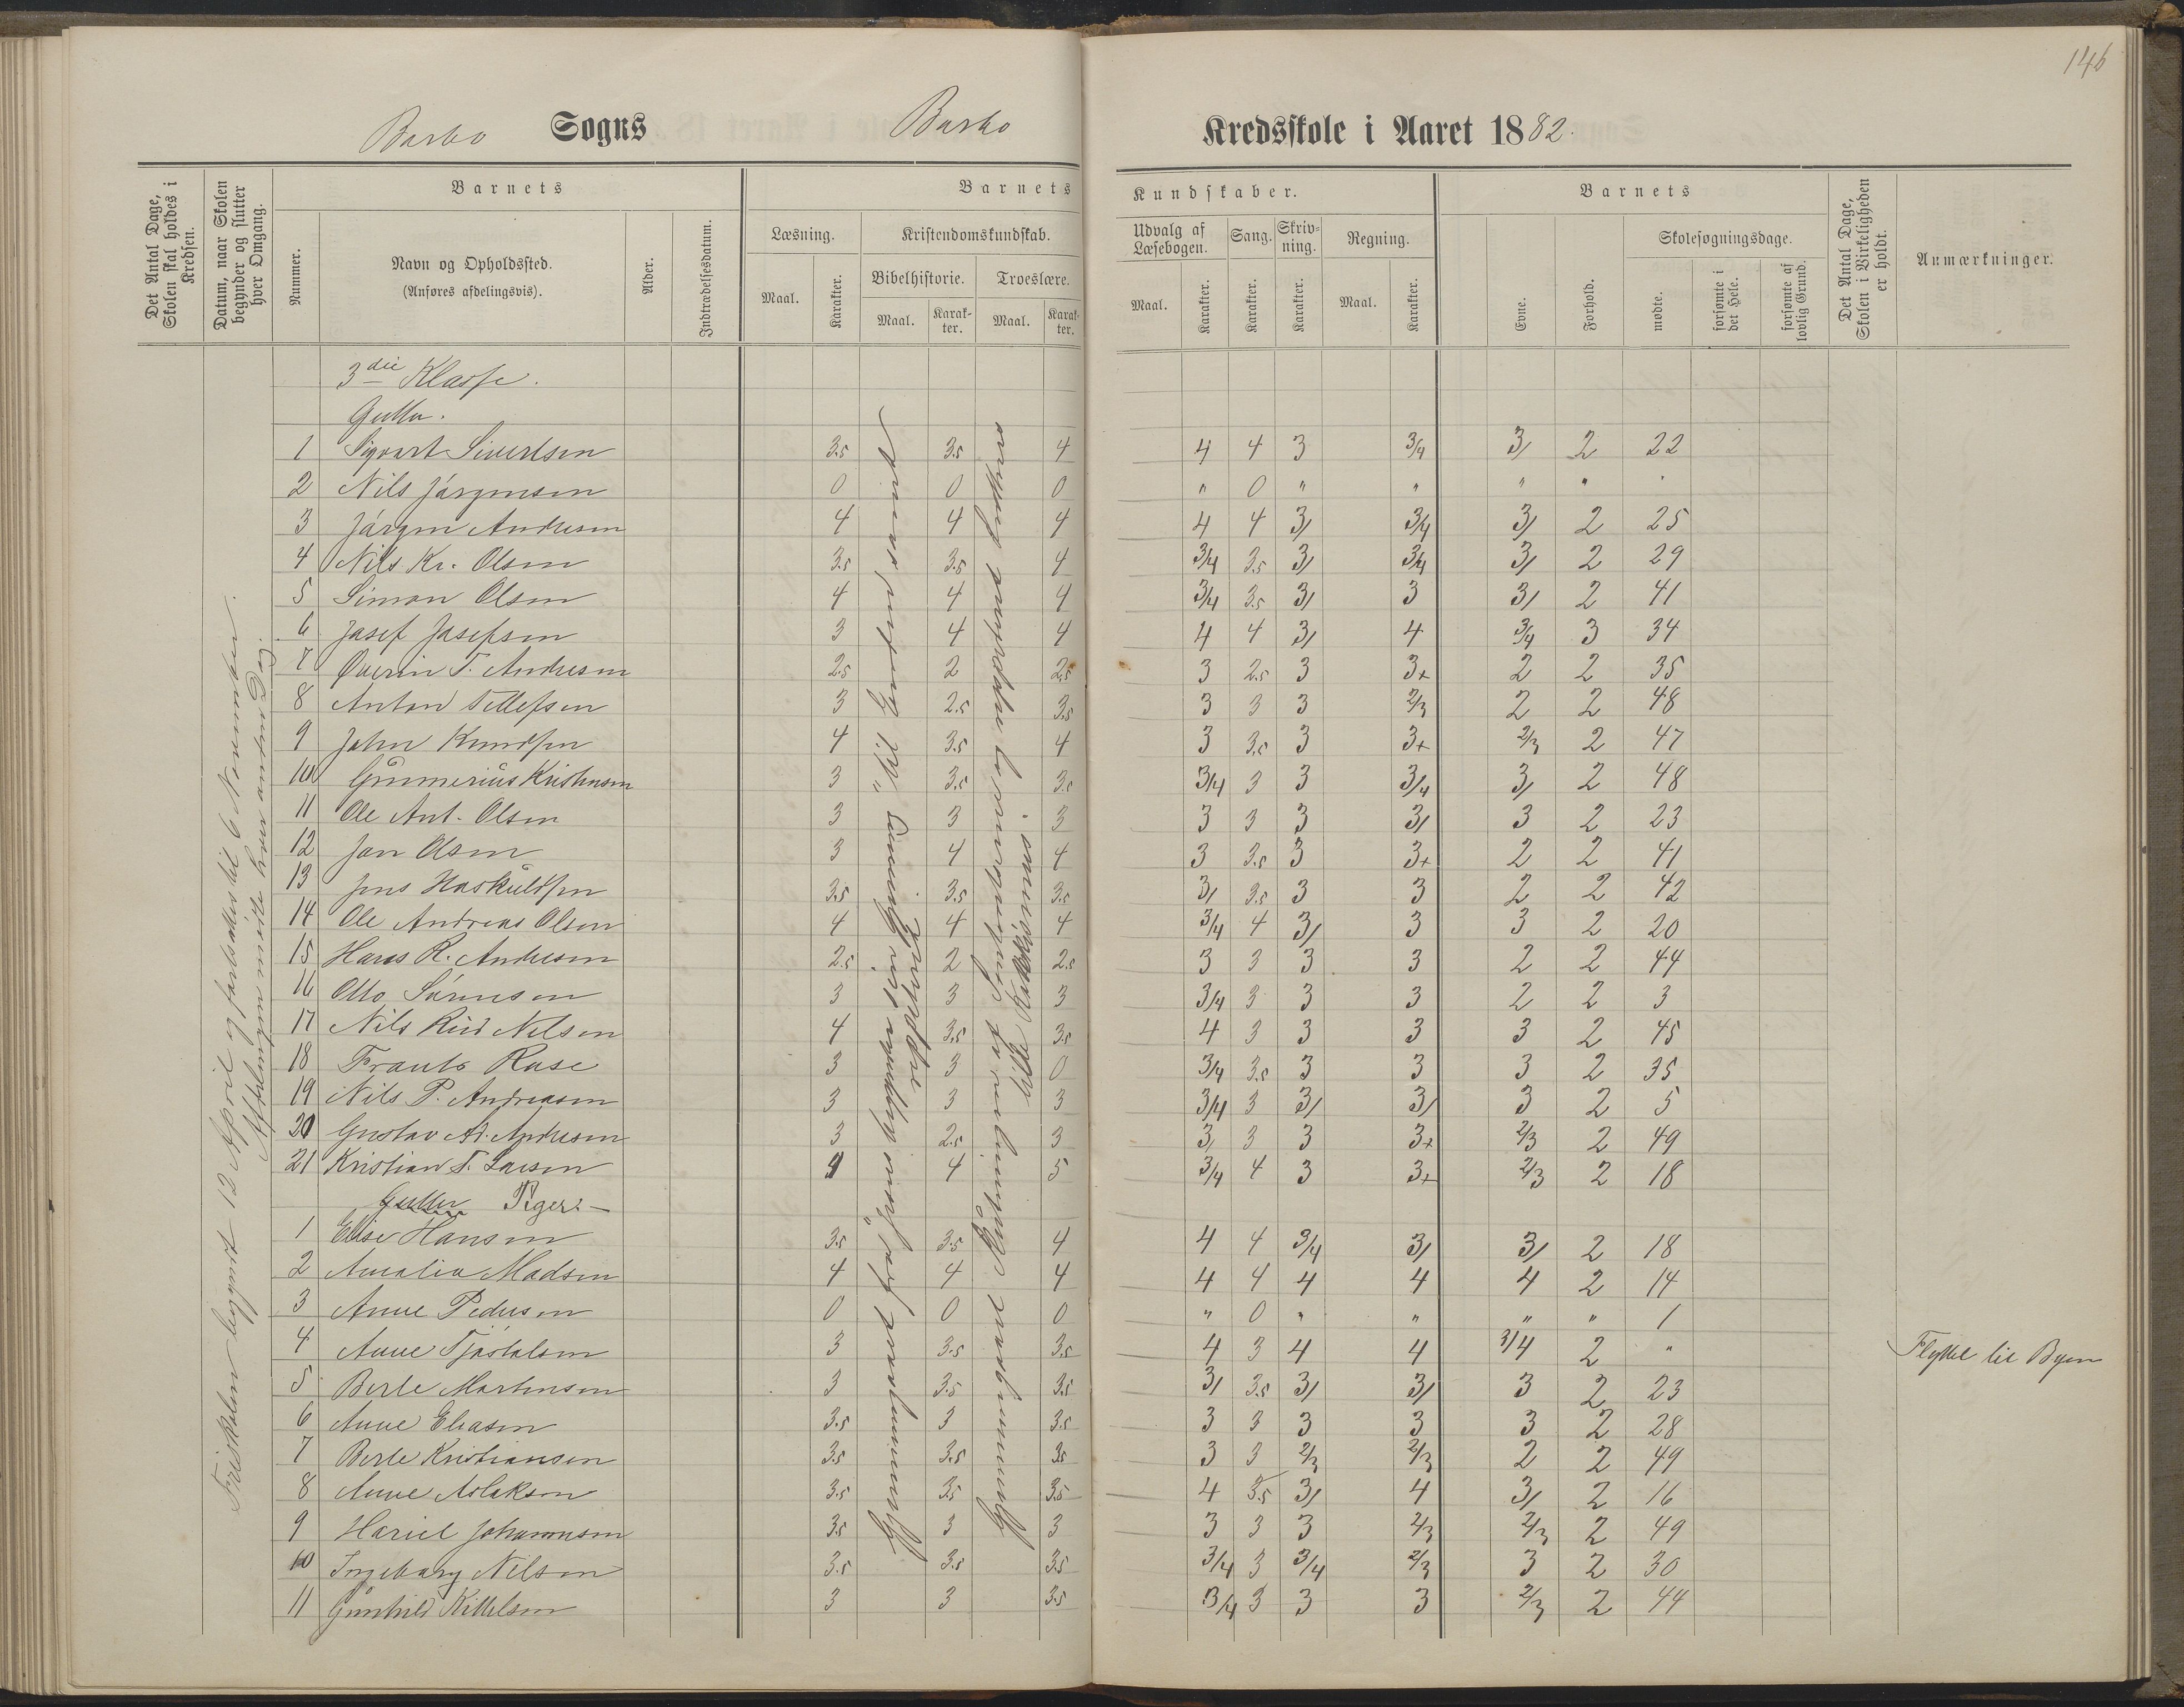 146
Barbo Sogns Barbo Kredsskole i Aaret 1882.
Det Antal Dage, Skolen skal holdes i Kredsen.
Datum, naar Skolen begynder og slutter hver Omgang.
Barnets
Nummer.
Navn og Opholdssted.
(Anføres afdelingsvis).
Alder.
Indtrædelsesdatum.
Barnets Kundskaber.
Læsning.
Maal.
Karakter.
Kristendomskundskab.
Bibelhistorie.
Maal.
Karakter.
Troeslære.
Maal.
Karakter.
Udvalg af Læsebogen.
Maal.
Karakter.
Sang.
Karakter.
Skrivning.
Karakter.
Regning.
Maal.
Karakter.
Barnets
Evne.
Forhold.
Skolesøgningsdage.
mødte.
forsømte i det Hele.
forsømte af lovlig Grund.
Det Antal Dage, Skolen i Virkeligheden er holdt.
Anmærkninger.
Friskolen begyndt 12 April og fortsattes til 6 November.
Afdelingen mødte hver anden Dag.
3die Klasse.
Gutter.
1 Sigvart Sivertsen 3.5 3.5 4 4 4 3 3/4 3/ 2 22
2 Nils Jörgensen 0 0 0 " 0 " " " " "
3 Jörgen Andersen 4 4 4 4 4 3/ 3/4 3/ 2 25
4 Nils Kr. Olsen 3.5 3.5 4 3/4 3.5 3/ 3/4 3/ 2 29
5 Simon Olsen 4 4 4 3/4 3.5 3/ 3 3/ 2 41
6 Josef Josefsen 3 4 4 4 4 3/ 4 3/4 3 34
7 Qverin T. Andresen 2.5 2 2.5 3 2.5 3 3+ 2 2 35
8 Anton Tellefsen 3 2.5 3.5 3 3 3 2/3 2 2 48
9 John Knudsen 4 3.5 4 3 3.5 3 3+ 2/3 2 47
10 Gunnerius Kristensen 3 3.5 3.5 3/4 3 3 3/4 3/ 2 48
11 Ole Ant. Olsen 3 3 3 3 3 3 3/ 3 2 23
12 Jon Olsen 3 4 4 3 3.5 3 3+ 2 2 41
13 Jens Haskuldsen 3.5 3.5 3.5 3/ 3.5 3 3 2 2 42
14 Ole Andreas Olsen 4 4 4 3/4 4 3/ 3 3 2 20
15 Hans R. Andresen 2.5 2 2.5 3 3 3 3 2 2 44
16 Otto Sörensen 3 3 3 3/4 3 3 3 2 2 3
17 Nils Rud Nelsen 4 3.5 3.5 4 3 3 3 3 2 45
18 Frants Rose 3 3 0 3/4 3.5 3 3 3 2 35
19 Nils P. Andreasen 3 3 3 3/4 3 3/ 3/ 3 2 5
20 Gustav Ad. Andresen 3 2.5 3 3/ 3 3 3+ 2/3 2 49
21 Kristian T. Larsen 4 4 5 3/4 4 3 3+ 2/3 2 18
Gutter Piger:
1 Elise Hansen 3.5 3.5 4 4 4 3/4 3/ 3/ 2 18
2 Amalia Madsen 4 4 4 4 4 4 4 4 2 14
3 Anne Pedersen 0 0 0 " 0 " " " " 1
4 Anne Tjöstolsen 3 3.5 3.5 4 3 4 4 3/4 2 " Flyttet til Byen
5 Berte Mortensen 3 3.5 3.5 3/ 3.5 3/ 3/ 3 2 23
6 Anne Eliasen 3.5 3 3.5 3 3 3 3 3 2 28
7 Berte Kristiansen 3.5 3.5 3.5 3 3 2/3 2/3 2 2 49
8 Anne Aslaksen 3.5 3.5 3.5 4 3.5 3/ 4 3/ 2 16
9 Hariel Johannesen 3.5 3 3 3 3 3 2/3 2/3 2 49
10 Ingeborg Nilsen 3.5 3.5 3.5 3/4 3 3/4 2/3 3 2 30
11 Gunhild Kittelsen 3 3 3.5 3/4 3 3 3 2/3 2 44